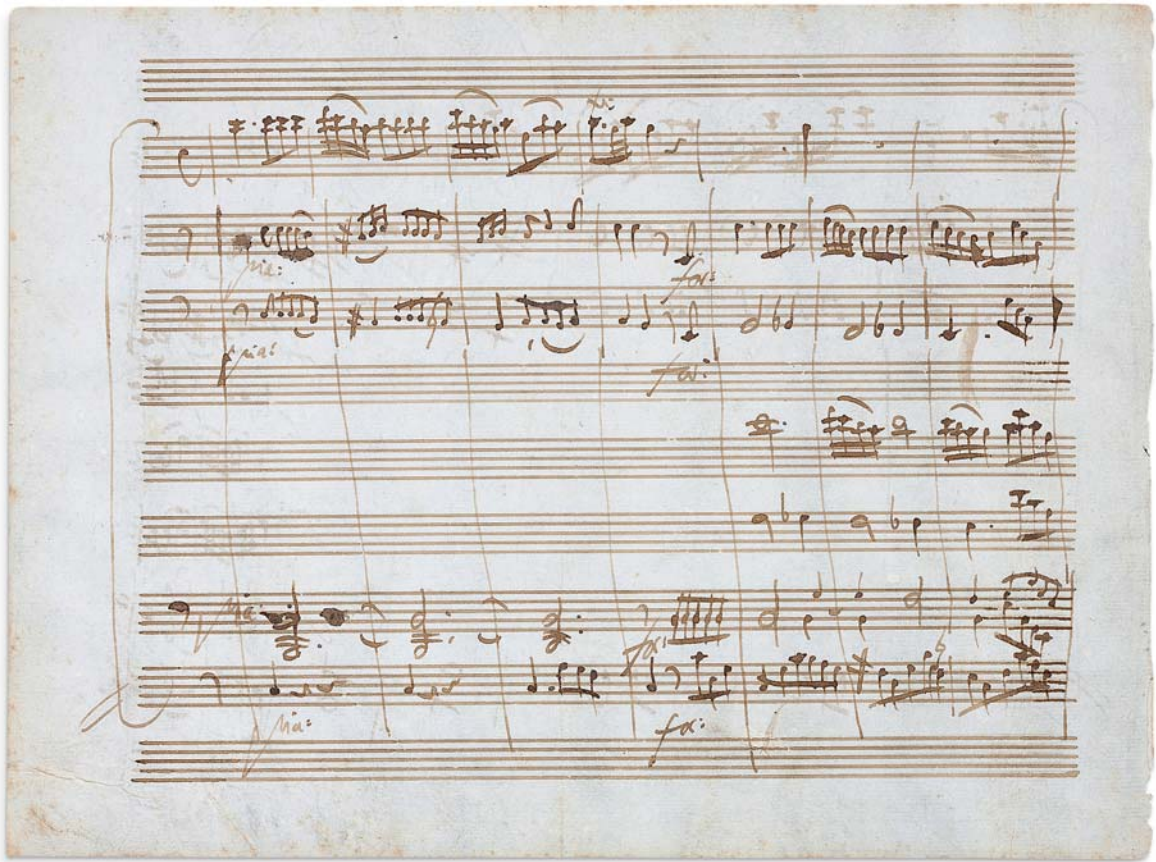 pia:
for:
pia:
for:
pia:
for:
pia:
fo: